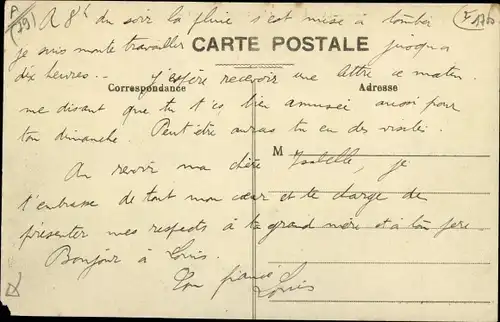 A 8h du soir la pluie s'est mise à tomber
je suis monté travailler jusqu'à
CARTE POSTALE
dix heures.. J'espère recevoir une lettre ce matin
Correspondance
Adresse
me disant que tu t'es bien amusée aussi pour
ton dimanche. Peut être auras tu eu des visites.
M
Au revoir ma chère Isabelle, je
t'embrasse de tout mon cœur et te charge de
présenter mes respects à ta grand mère et à ton père
Bonjour à Louis.
Ton fiancé
Louis